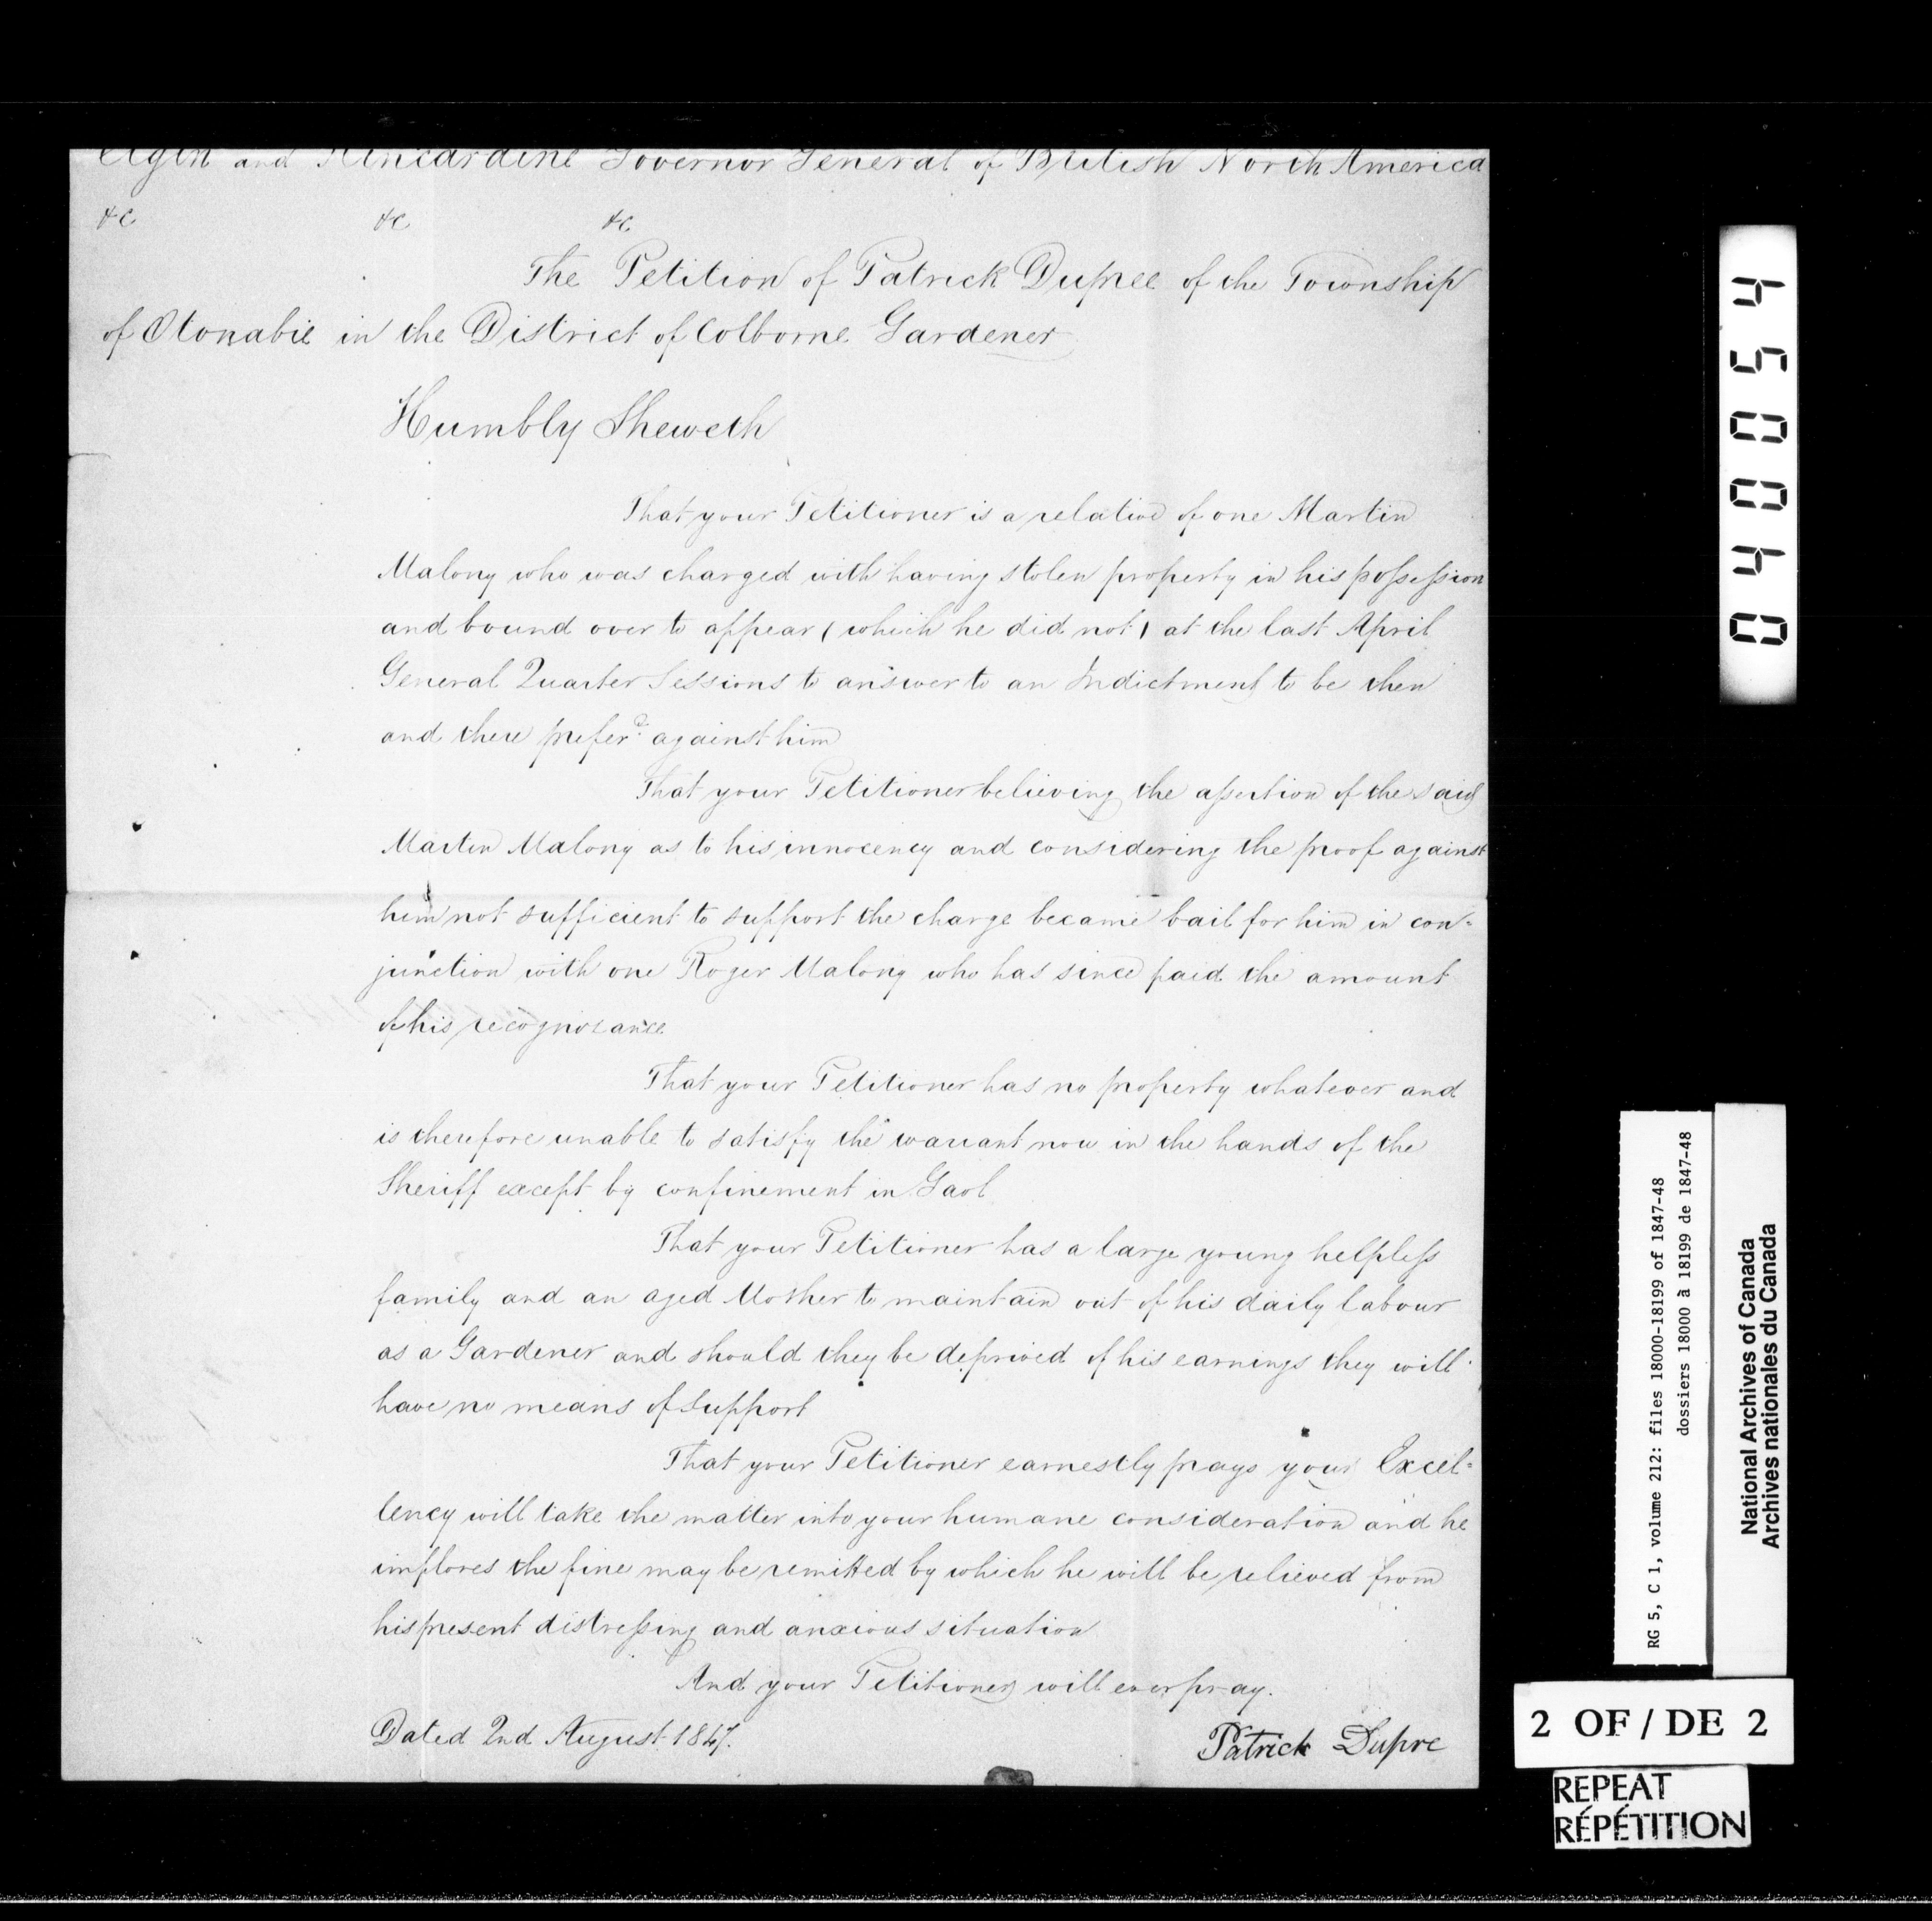 Elgin and Kincardine Governor General of British North America
&c &c &c
The Petition of Patrick Dupree of the Township
of Otonabie in the District of Colborne Gardener
Humbly Sheweth
That your Petitioner is a relative of one Martin
Malony who was charged with having stolen property in his possession
and bound over to appear (which he did not) at the last April
General Quarter Sessions to answer to an Indictment to be then
and there prefer.d against him
That your Petitioner believing the assertion of the said
Martin Malony as to his innocency and considering the proof against
him not sufficient to support the charge became bail for him in con-
junction with one Roger Malony who has since paid the amount
of his recognozance
That your Petitioner has no property whatever and
is therefore unable to satisfy the warrant now in the hands of the
Sheriff except by confinement in Gaol
That your Petitioner has a large young helpless
family and an aged Mother to maintain out of his daily labour
as a Gardener and should they be deprived of his earnings they will
have no means of support
That your Petitioner earnestly prays your Excel-
lency will take the matter into your humane consideration and he
implores the fine may be remitted by which he will be relieved from
his present distressing and anxious situation
And your Petitioner will ever pray.
Dated 2nd August 1847. Patrick Dupre
040054
RG 5, C 1, volume 212: files 18000-18199 of 1847-48
dossiers 18000 à 18199 de 1847-48
National Archives of Canada
Archives nationales du Canada
2 OF / DE 2
REPEAT
RÉPÉTITION